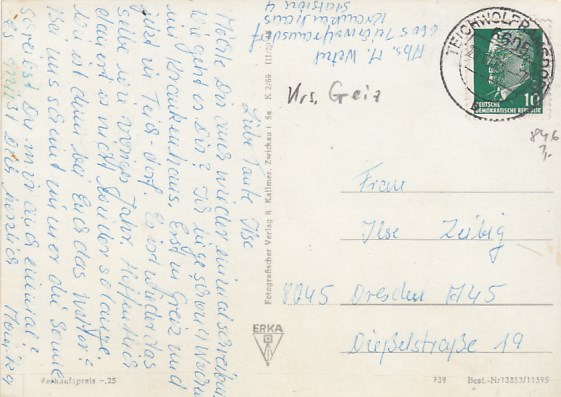 Liebe Tante Ilse
Möchte Dir auch wieder einmal schreiben.
Wie geht es Dir? Ich liege schon 4 Wochen
im Krankenhaus. Erst in Greiz und
jetzt in Teich-dorf. Es ist wieder das
selbe wie voriges Jahr. Hoffentlich
dauert es nicht wieder so lange.
Wie ist denn bei Euch das Wetter?
Bei uns scheint immer die Sonne
Schreibst Du mir auch einmal?
Es grüßt Dich herzlich Monika
Abs. M.
6605 Teichwolframsdorf
Krankenhaus
Station 4
Krs. Greiz
TEICHWOLFRAMSDORF
6605
DEUTSCHE
DEMOKRATISCHE REPUBLIK
10
846
Frau
Ilse Zeibig
8045 Dresden A45
Dießelstraße 19
Fotografischer Verlag R Kallmer, Zwickau i Sa K 2/69
ERKA
Verkaufspreis -,25
939 Best.-Nr 13353/11595